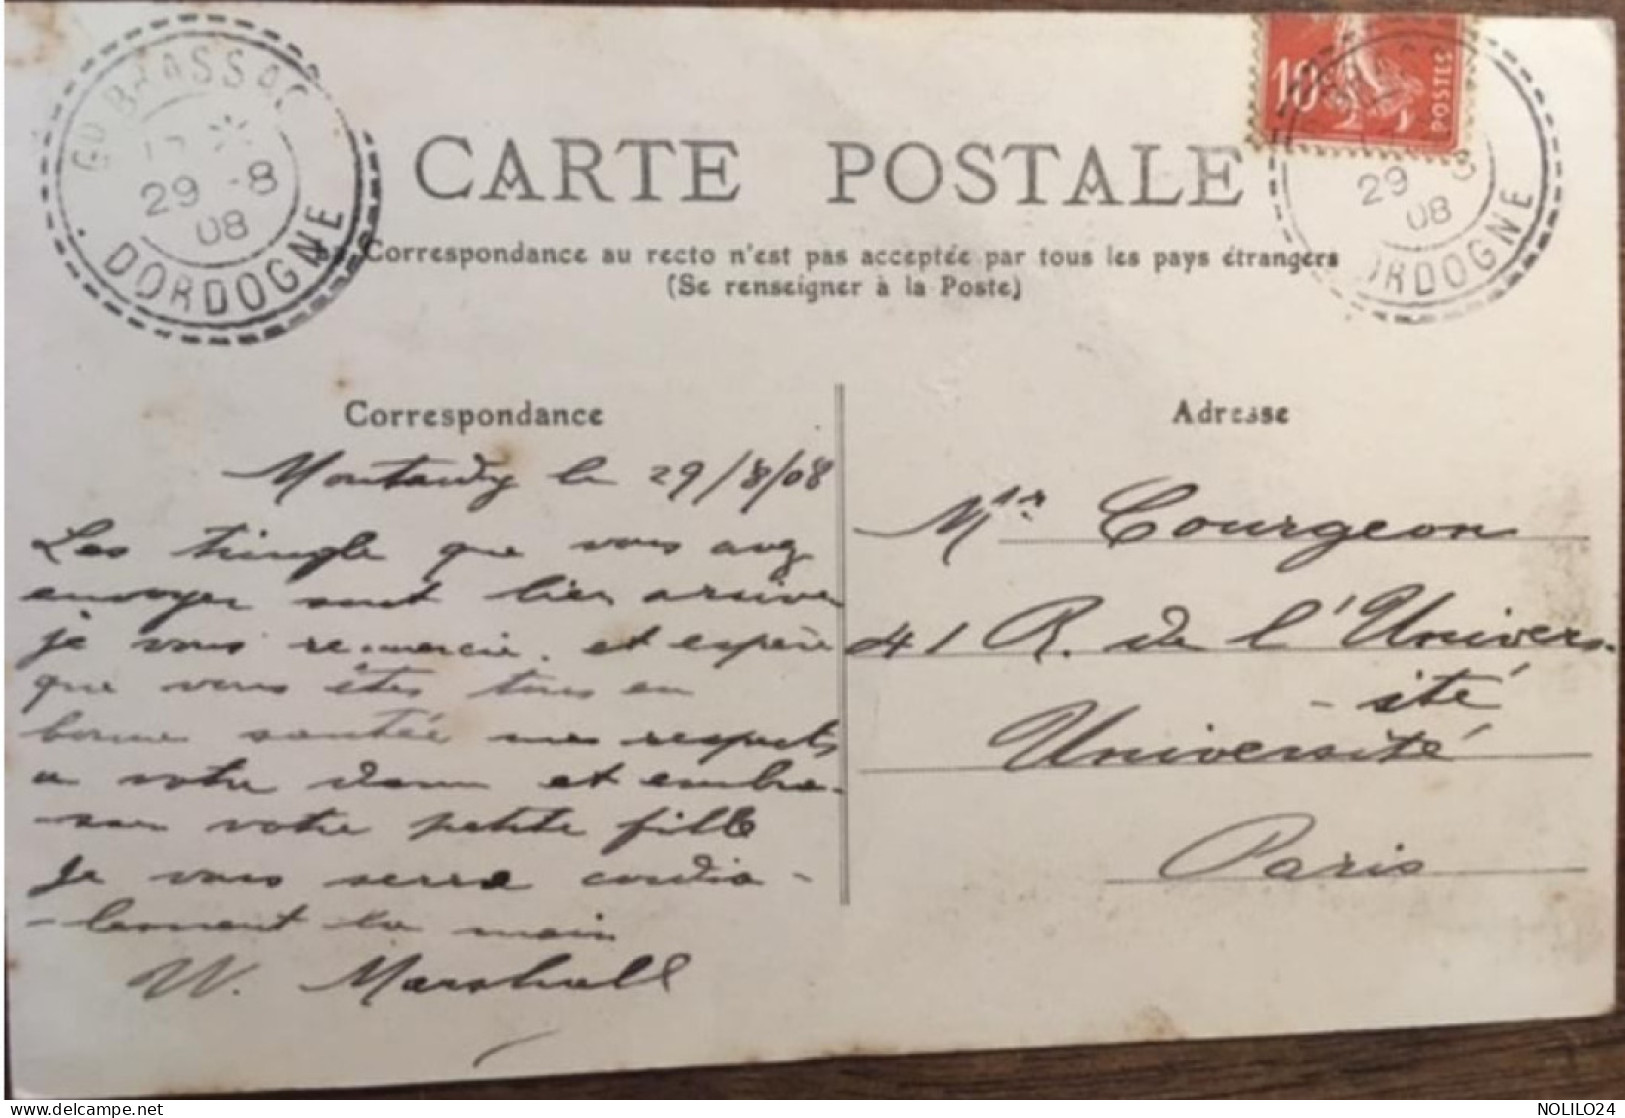 GD BRASSAC
29 -8
08
DORDOGNE
10
POSTES
29 8
08
ORDOGNE
CARTE POSTALE
Correspondance au recto n'est pas acceptée par tous les pays étrangers
(Se renseigner à la Poste)
Correspondance
le 29/8/08
Les tringle que vous avez
envoyer sont bien arriver
je vous remercie. et espère
que vous êtes tous en
bonne santée mes respects
a votre dame et embra-
-ser votre petite fille
Je vous serre cordia-
-lement la main
W. Marshall
Adresse
Mr Courgeon
41 R. de l'Univers-
-ité
Université
Paris
NOLILO24